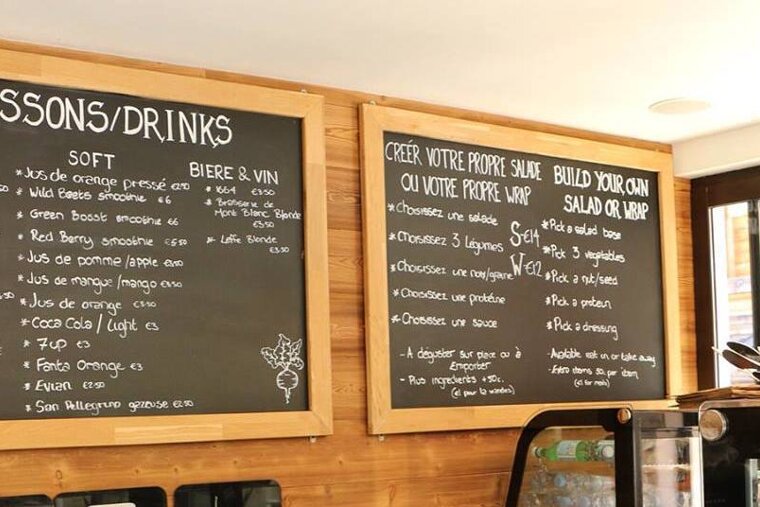 SSONS/DRINKS
SOFT
* Jus de orange pressé
* Wild Beets smoothie €6
* Green Boost smoothie €6
* Red Berry smoothie €5.50
* Jus de pomme/apple €3.50
* Jus de mangue/mango €3.50
* Jus de orange €3.50
* Coca Cola / Light €3
* 7up €3
* Fanta Orange €3
* Evian €2.50
* San Pellegrino gazeuse €2.50
BIERE & VIN
* 1664 €3.50
* Brasserie de
Mont Blanc Blonde
€3.50
* Leffe Blonde
€3.50
CREÉR VOTRE PROPRE SALADE
OU VOTRE PROPRE WRAP
* Choisissez une salade
* Choisissez 3 légumes
* Choisissez une noix/graine
* Choisissez une protéine
* Choisissez une sauce
- A déguster sur place ou à
Emporter
- Plus ingredients +50c.
(€1 pour la viandes)
S-€14
W-€12
BUILD YOUR OWN
SALAD OR WRAP
* Pick a salad base
* Pick 3 vegetables
* Pick a nut/seed
* Pick a protein
* Pick a dressing
- Available eat in or take away
- Extra items 50 per item
(€1 for meats)